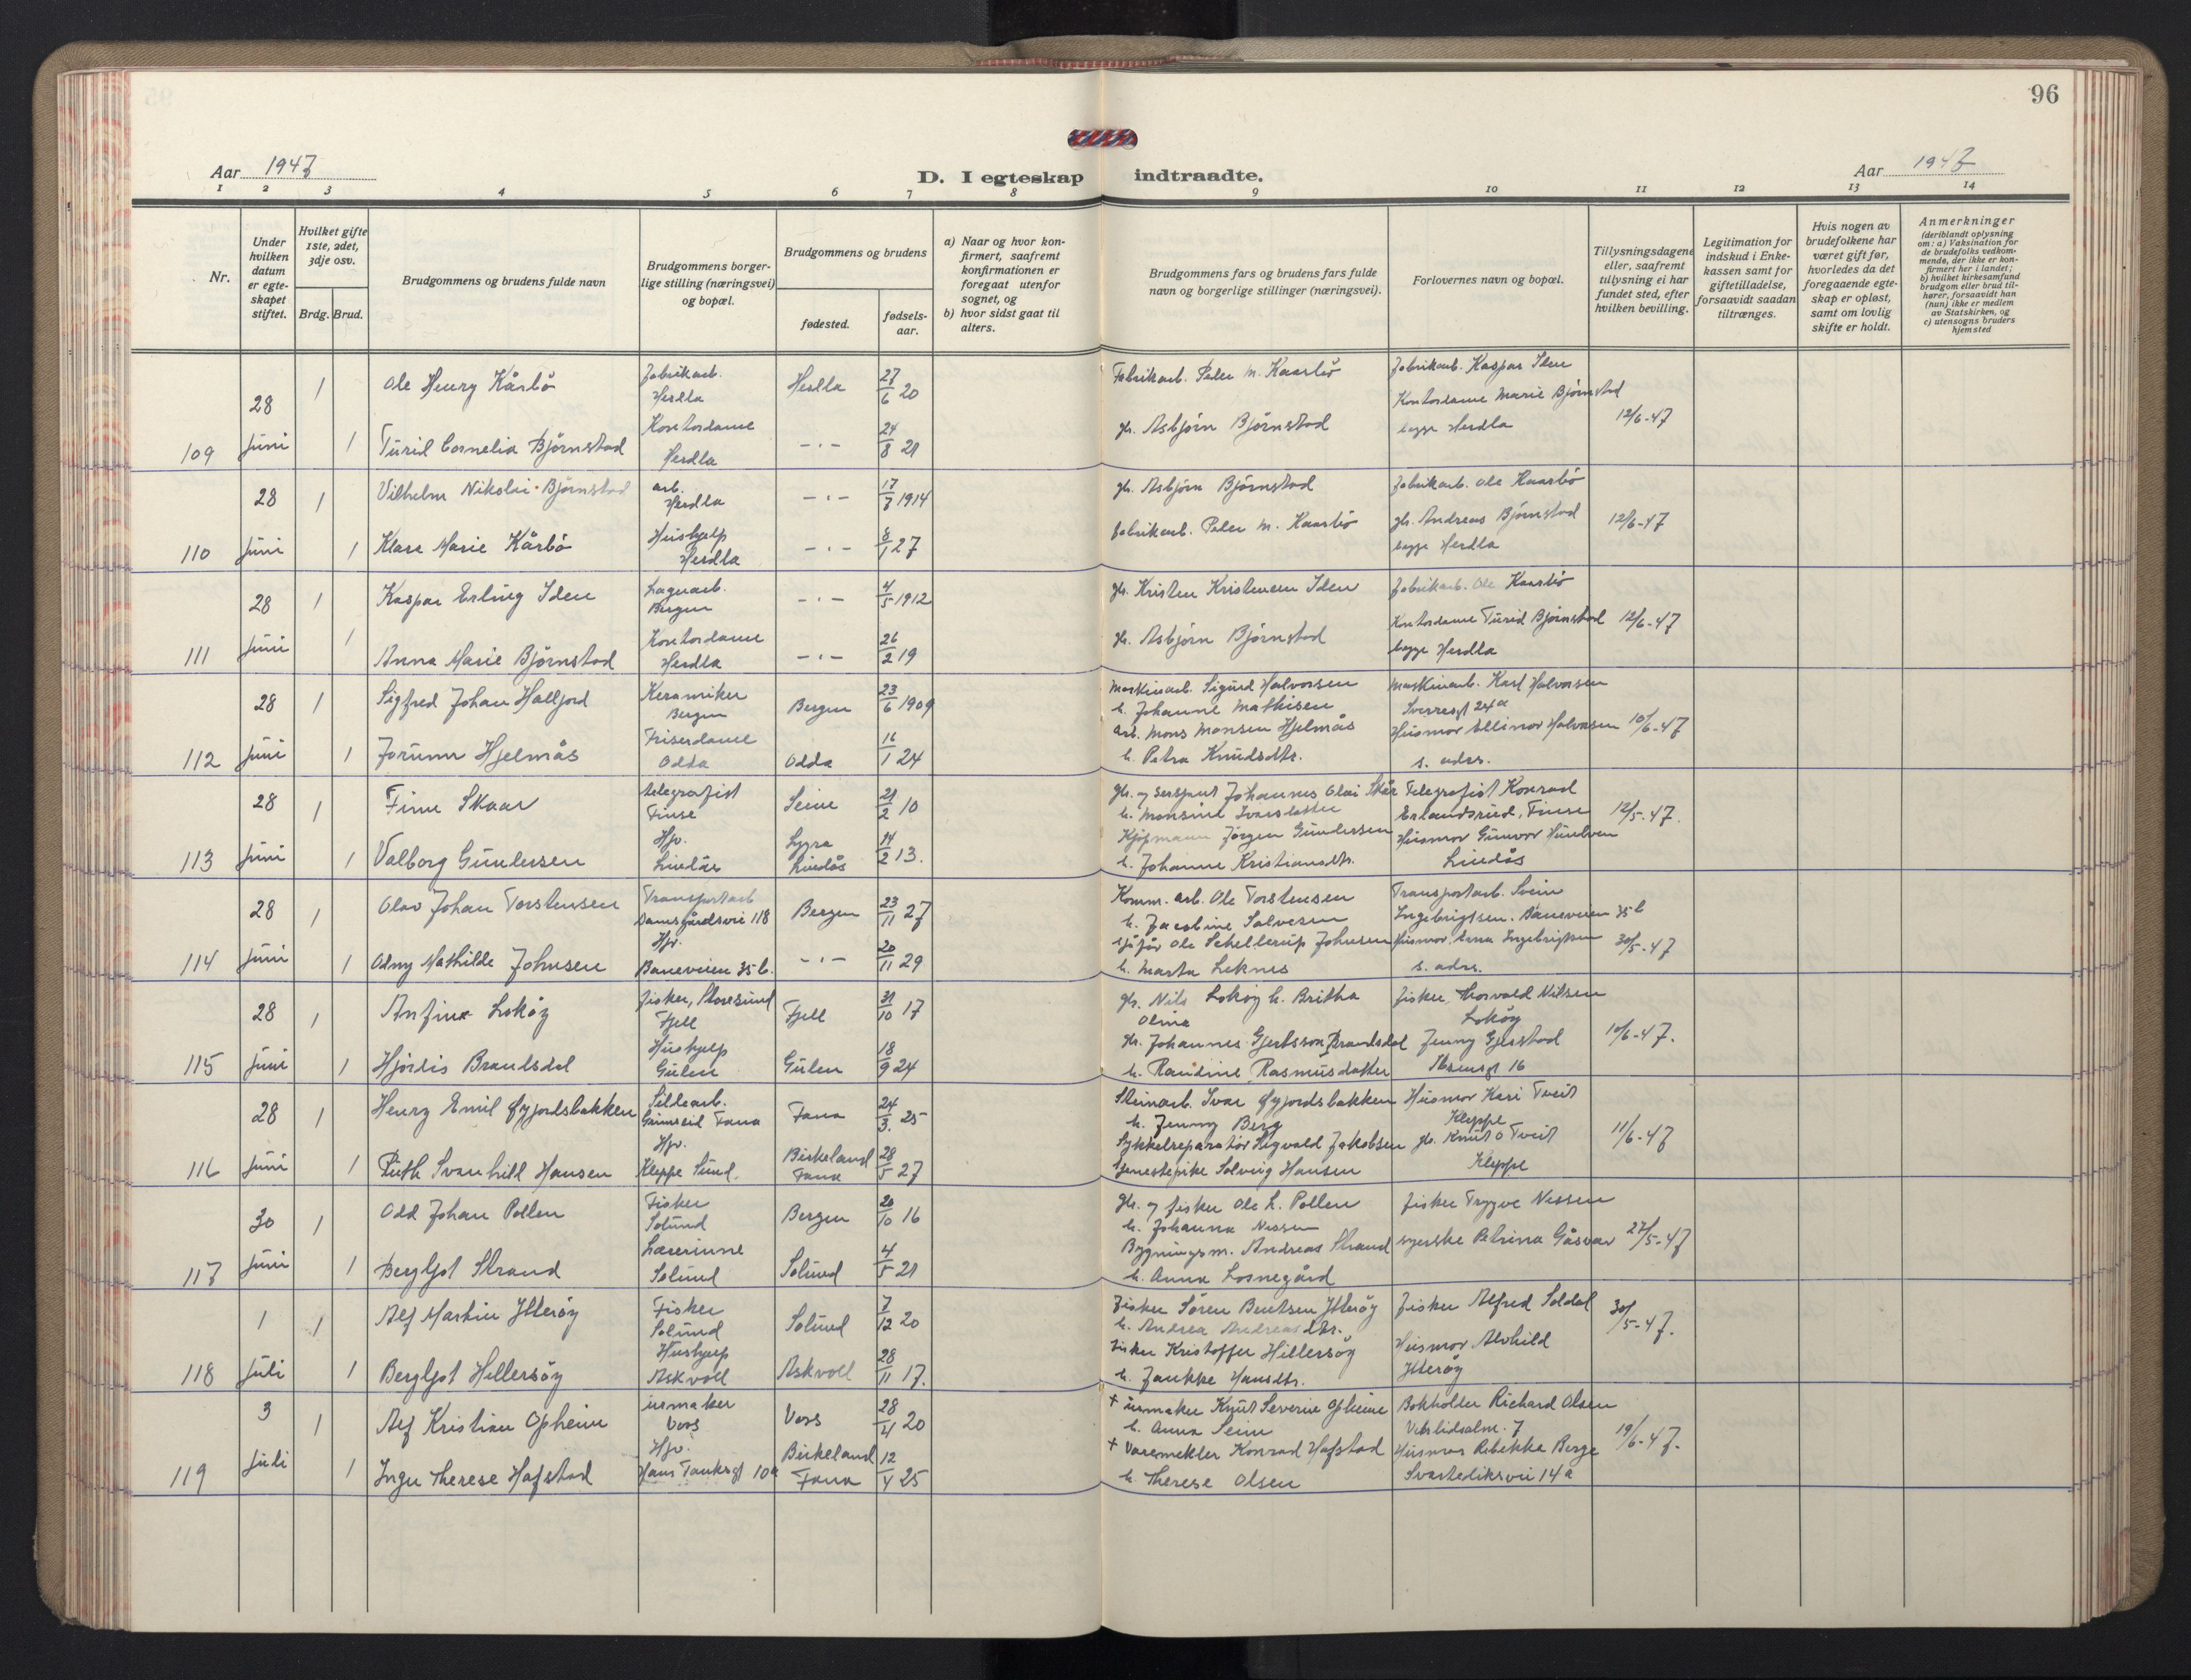 96
Aar 1947
D. I egteskap indtraadte.
Aar 1947
1 2 3 4 5 6 7 8 9 10 11 12 13 14
Nr.
Under hvilken datum er egte-skapet stiftet.
Hvilket gifte 1ste, 2det, 3dje osv.
Brdg. Brud.
Brudgommens og brudens fulde navn
Brudgommens borger-lige stilling (næringsvei) og bopæl.
Brudgommens og brudens
fødested.
fødsels-aar.
a) Naar og hvor kon-firmert, saafremt konfirmationen er foregaat utenfor sognet, og
b) hvor sidst gaat til alters.
Brudgommens fars og brudens fars fulde navn og borgerlige stillinger (næringsvei).
Forlovernes navn og bopæl.
Tillysningsdagene eller, saafremt tillysning ei har fundet sted, efter hvilken bevilling.
Legitimation for indskud i Enke-kassen samt for giftetilladelse, forsaavidt saadan tiltrænges.
Hvis nogen av brudefolkene har været gift før, hvorledes da det foregaaende egte-skap er opløst, samt om lovlig skifte er holdt.
Anmerkninger
(deriblandt oplysning om: a) Vaksination for de brudefolks vedkom-mende, der ikke er kon-firmert her i landet; b) hvilket kirkesamfund brudgom eller brud til-hører, forsaavidt han (hun) ikke er medlem av Statskirken, og c) utensogns bruders hjemsted
109 28 Juni
1 Ole Henry Kårbø Fabrikarb. Herdla Herdla 27/6 20 Fabrikarb. Peder M. Kaarbø Fabrikarb. Kaspar Iden
1 Turid Cornelia Bjørnstad Kontordame Herdla -"- 24/8 21 gb. Asbjørn Bjørnstad Kontordame Marie Bjørnstad begge Herdla 12/6-47
110 28 Juni
1 Vilhelm Nikolai Bjørnstad arb. Herdla -"- 17/7 1914 gb. Asbjørn Bjørnstad Fabrikarb. Ole Kaarbø
1 Klara Marie Kårbø Hushjelp Herdla -"- 8/1 27 fabrikarb. Peder M. Kaarbø gb. Andreas Bjørnstad begge Herdla 12/6-47
111 28 Juni
1 Kaspar Erling Iden Lagerarb. Bergen -"- 4/5 1912 gb. Kristen Kristensen Iden Fabrikarb. Ole Kaarbø
1 Anna Marie Bjørnstad Kontordame Herdla -"- 26/2 19 gb. Asbjørn Bjørnstad Kontordame Turid Bjørnstad begge Herdla 12/6-47
112 28 Juni
1 Sigfred Johan Halljord Keramiker Bergen Bergen 23/6 1909 Maskinarb. Sigurd Halvorsen h. Johanne Mathisen Maskinarb. Karl Halvorsen Sverresgt 24a
1 Jorunn Hjelmås Friserdame Odda Odda 16/1 24 arb. Mons Monsen Hjelmås h. Petra Knudsdtr. Husmor Ellinor Halvorsen s. adrs. 10/6-47
113 28 Juni
1 Finn Skaar telegrafist Finse Seim 21/2 10 gb. og sersjant Johannes Olai Skår h. Monsine Ivarsdatter Telegrafist Konrad Erlandsrud, Finse
1 Valborg Gundersen Hjv. Lindås Lygra Lindås 14/2 13. Kjøpmann Jørgen Gundersen h. Johanne Kristiansdtr. Husmor Gunvor Hundven Lindås 12/5-47.
114 28 Juni
1 Olav Johan Torstensen Transportarb Damsgårdsvei 118 Bergen 23/11 27 Komm. arb. Ole Torstensen h. Jacobine Salvesen Transportarb. Svein Ingebrigtsen. Baneveien 35 b
1 Odny Mathilde Johnsen Hjv. Baneveien 35 b. -"- 20/11 29 Sjåfør Ole Schellerup Johnsen h. Marta Leknes Husmor Anna Ingebrigtsen s. adrs. 30/5-47
115 28 Juni
1 Anfinn Lokøy fisker, Storesund Fjell Fjell 31/10 17 gb. Nils Lokøy h. Britha Olina fisker, Thorvald Nilsen Lokøy
1 Hjørdis Brandsdal Hushjelp Gulen Gulen 18/9 24 gb. Johannes Gjertsson Brandsdal h. Randine Rasmusdatter Jenny Gjerstad Ibsensgt 16 10/6-47.
116 28 Juni
1 Henry Emil Øyjordsbakken Sildearb. Grimseid Fana Fana 24/3. 25 Steinarb. Ivar Øyjordsbakken h. Jenny Berg Husmor Kari Tveit Kleppe
1 Ruth Svanhild Hansen Hjv. Kleppe Sund. Birkeland Fana 28/5 27 Sykkelreparatør Sigvald Jakobsen tjenestepike Solveig Hansen gb. Knut O Tveit Kleppe 11/6-47
117 30 Juni
1 Odd Johan Pollen Fisker Solund Bergen 20/10 16 gb. og fisker Ole L. Pollen h. Johanna Nessen fisker Trygve Nessen
1 Bergljot Strand Lærerinne Solund Solund 4/5 21 Bygningsm. Andreas Strand h. Anna Losnegård syerske Petrina Gåsvær 27/5-47
118 1 Juli
1 Alf Martin Ytterøy Fisker Solund Solund 7/12 20 Fisker Søren Bentsen Ytterøy h. Andrea Andreasdtr. Fisker Alfred Soldal
1 Bergljot Hellersøy Hushjelp Askvoll Askvoll 28/11 17. fisker Kristoffer Hillersøy h. Jankke Hansdtr. Husmor Alvhild Ytterøy 30/5-47.
119 3 Juli
1 Alf Kristian Opheim urmaker Voss Voss 28/4 20 + urmaker Knut Severin Opheim h. Anna Seim Bokholder Richard Olsen Vetrlidsalm. 7
1 Inga Therese Hafstad Hjv. Hans Tanksgt 10a Birkeland Fana 12/4 25 + Varemekler Konrad Hafstad h. Therese Olsen Husmor Rebekka Berge Svartediksvei 14a 19/6-47.